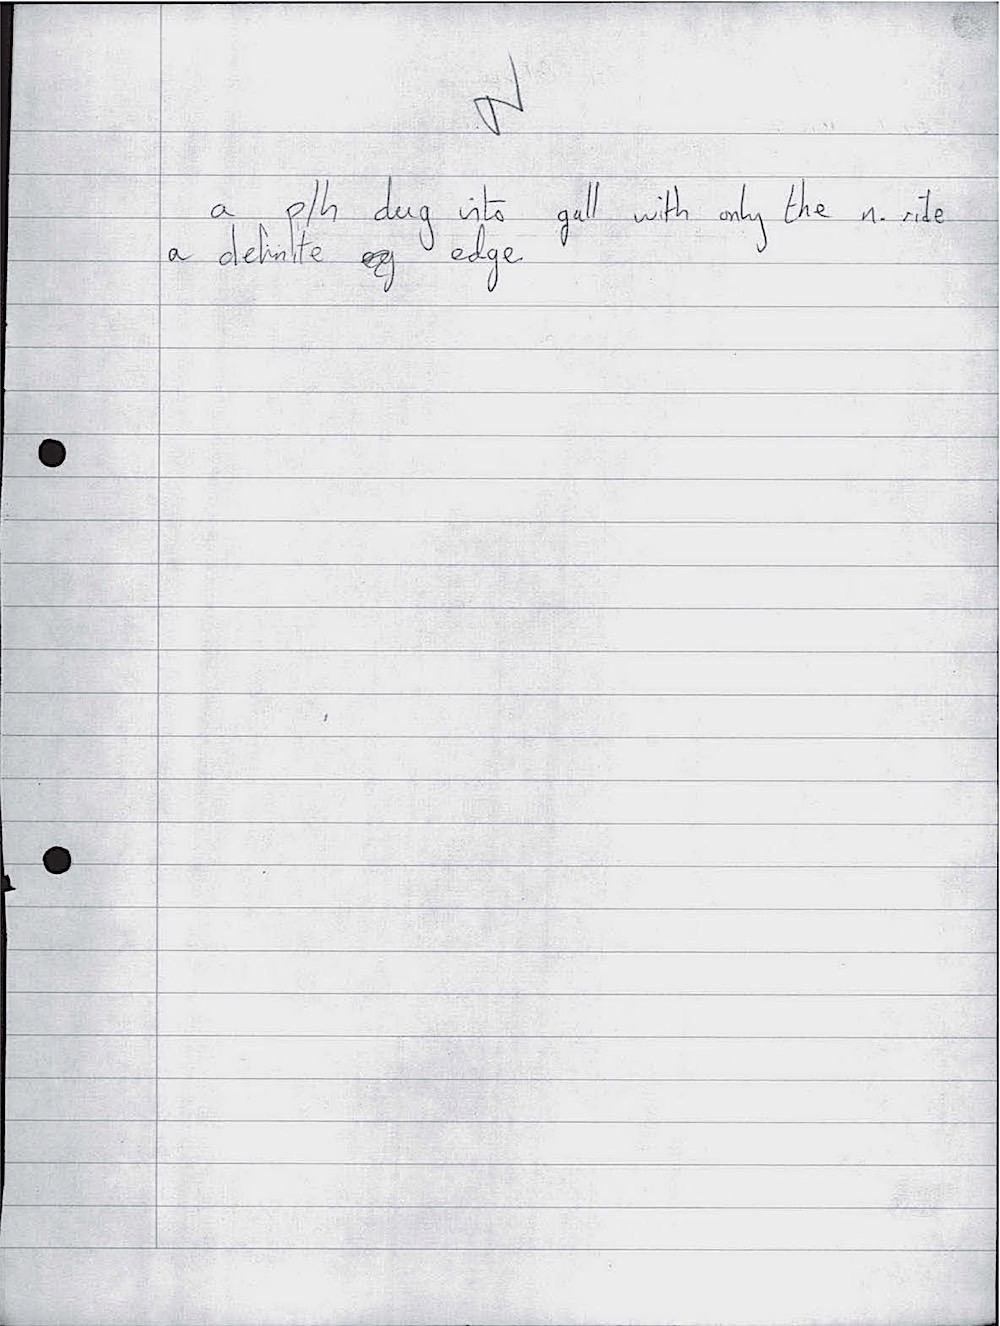 a p/h dug into gull with only the n. side
a definite edge